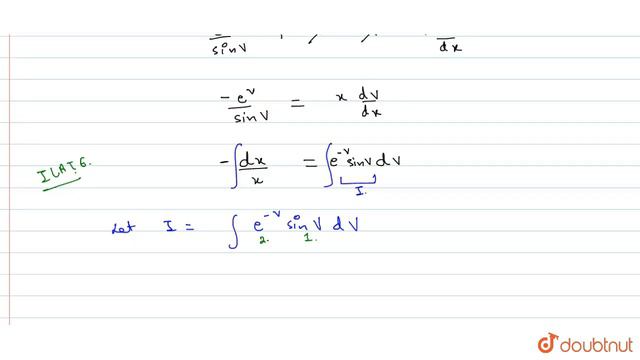 sinV dx
-e^v / sinV = x dV/dx
-∫ dx/x = ∫ e^-v sinV dV
I.
ILATE.
Let I = ∫ e^-v sin V dV
2. 1.
doubtnut